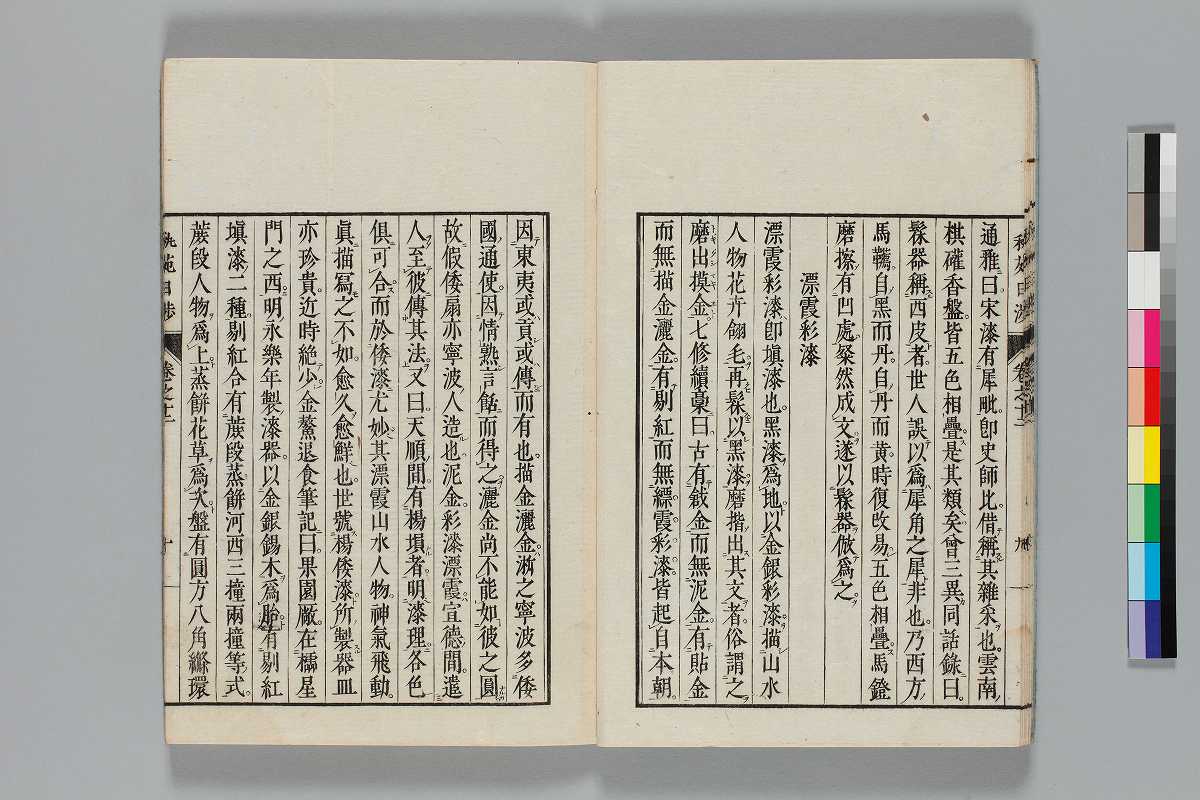 通雅曰宋漆有犀毗卽史師比借稱其雜釆也雲南
棋確香盤皆五色相疊是其類矣曾三異同話錄曰
髹器稱西皮者世人誤以爲犀角之犀非也乃西方
馬韉自黑而丹自丹而黄時復改易五色相疊馬鐙
磨擦有凹處粲然成文遂以髹器倣爲之
漂霞彩漆
漂霞彩漆卽塡漆也黑漆爲地以金銀彩漆描山水
人物花卉翎毛再髹以黑漆磨揩出其文者俗謂之
磨出摸金七修續稾曰古有戧金而無泥金有貼金
而無描金灑金有剔紅而無縹霞彩漆皆起自本朝
因東夷或貢或傳而有也描金灑金淅之寧波多倭
國通使因情熟言餂而得之灑金尚不能如彼之圓
故假倭扇亦寧波人造也泥金彩漆漂霞宣德間遣
人至彼傳其法又曰天順間有楊塤者明漆理各色
俱可合而於倭漆尤妙其漂霞山水人物神氣飛動
眞描寫之不如愈久愈鮮也世號楊倭漆所製器皿
亦珍貴近時絶少金鰲退食筆記曰果園厰在櫺星
門之西明永樂年製漆器以金銀錫木爲胎有剔紅
塡漆二種剔紅合有蔗段蒸餠河西三撞兩撞等式
蔗段人物爲上蒸餠花草爲次盤有圓方八角縧環
秇苑日渉
卷之十二
十